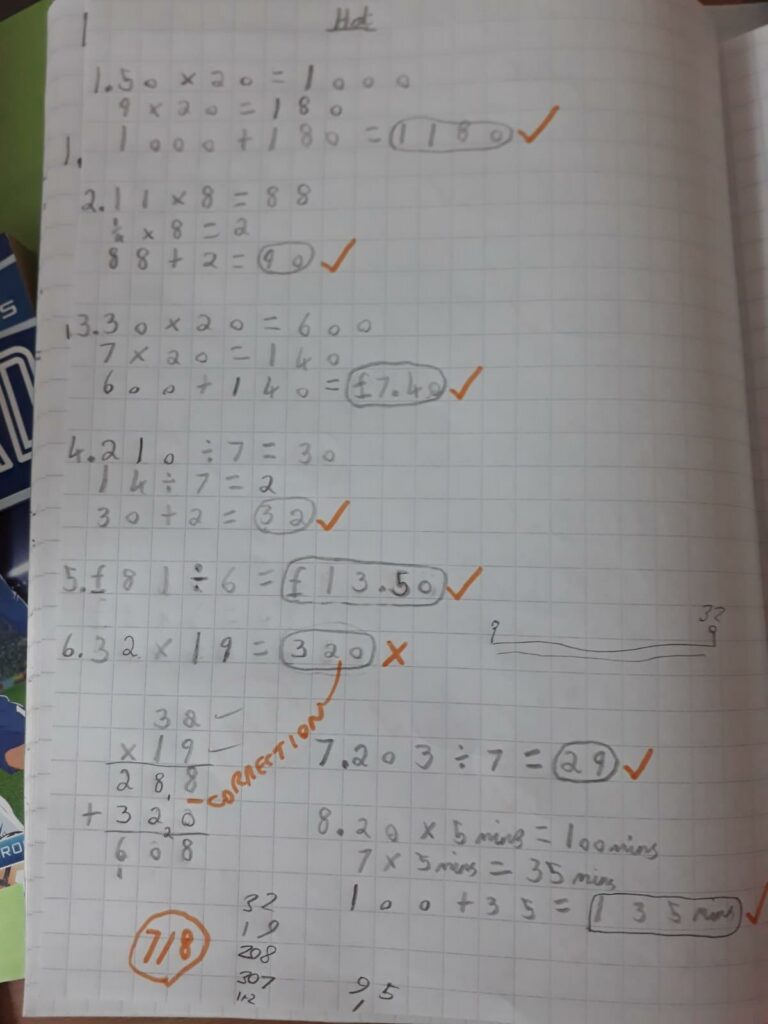 1
Hot
1. 50 × 20 = 1000
9 × 20 = 180
1000 + 180 = 1180 ✓
1.
2. 11 × 8 = 88
¼ × 8 = 2
88 + 2 = 90 ✓
3. 30 × 20 = 600
7 × 20 = 140
600 + 140 = £7.40 ✓
4. 210 ÷ 7 = 30
14 ÷ 7 = 2
30 + 2 = 32 ✓
5. £81 ÷ 6 = £13.50 ✓
32
9
9
6. 32 × 19 = 320 ✗
32
×19
288
+ 320
608
CORRECTION
7. 203 ÷ 7 = 29 ✓
8. 20 × 5 mins = 100 mins
7 × 5 mins = 35 mins
100 + 35 = 135 mins ✓
7/8
32
19
208
307
95